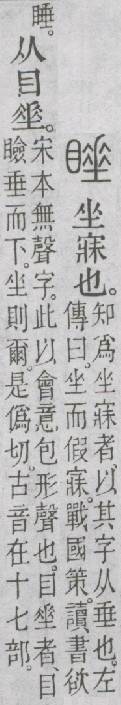 睡 坐寐也。
知爲坐寐者、以其字从垂也。左
傳曰。坐而假寐。戰國策。讀書欲
睡。
从目𠂹。
宋本無聲字。此以會意包形聲也。目𠂹者、目
瞼垂而下。坐則爾。是僞切。古音在十七部。